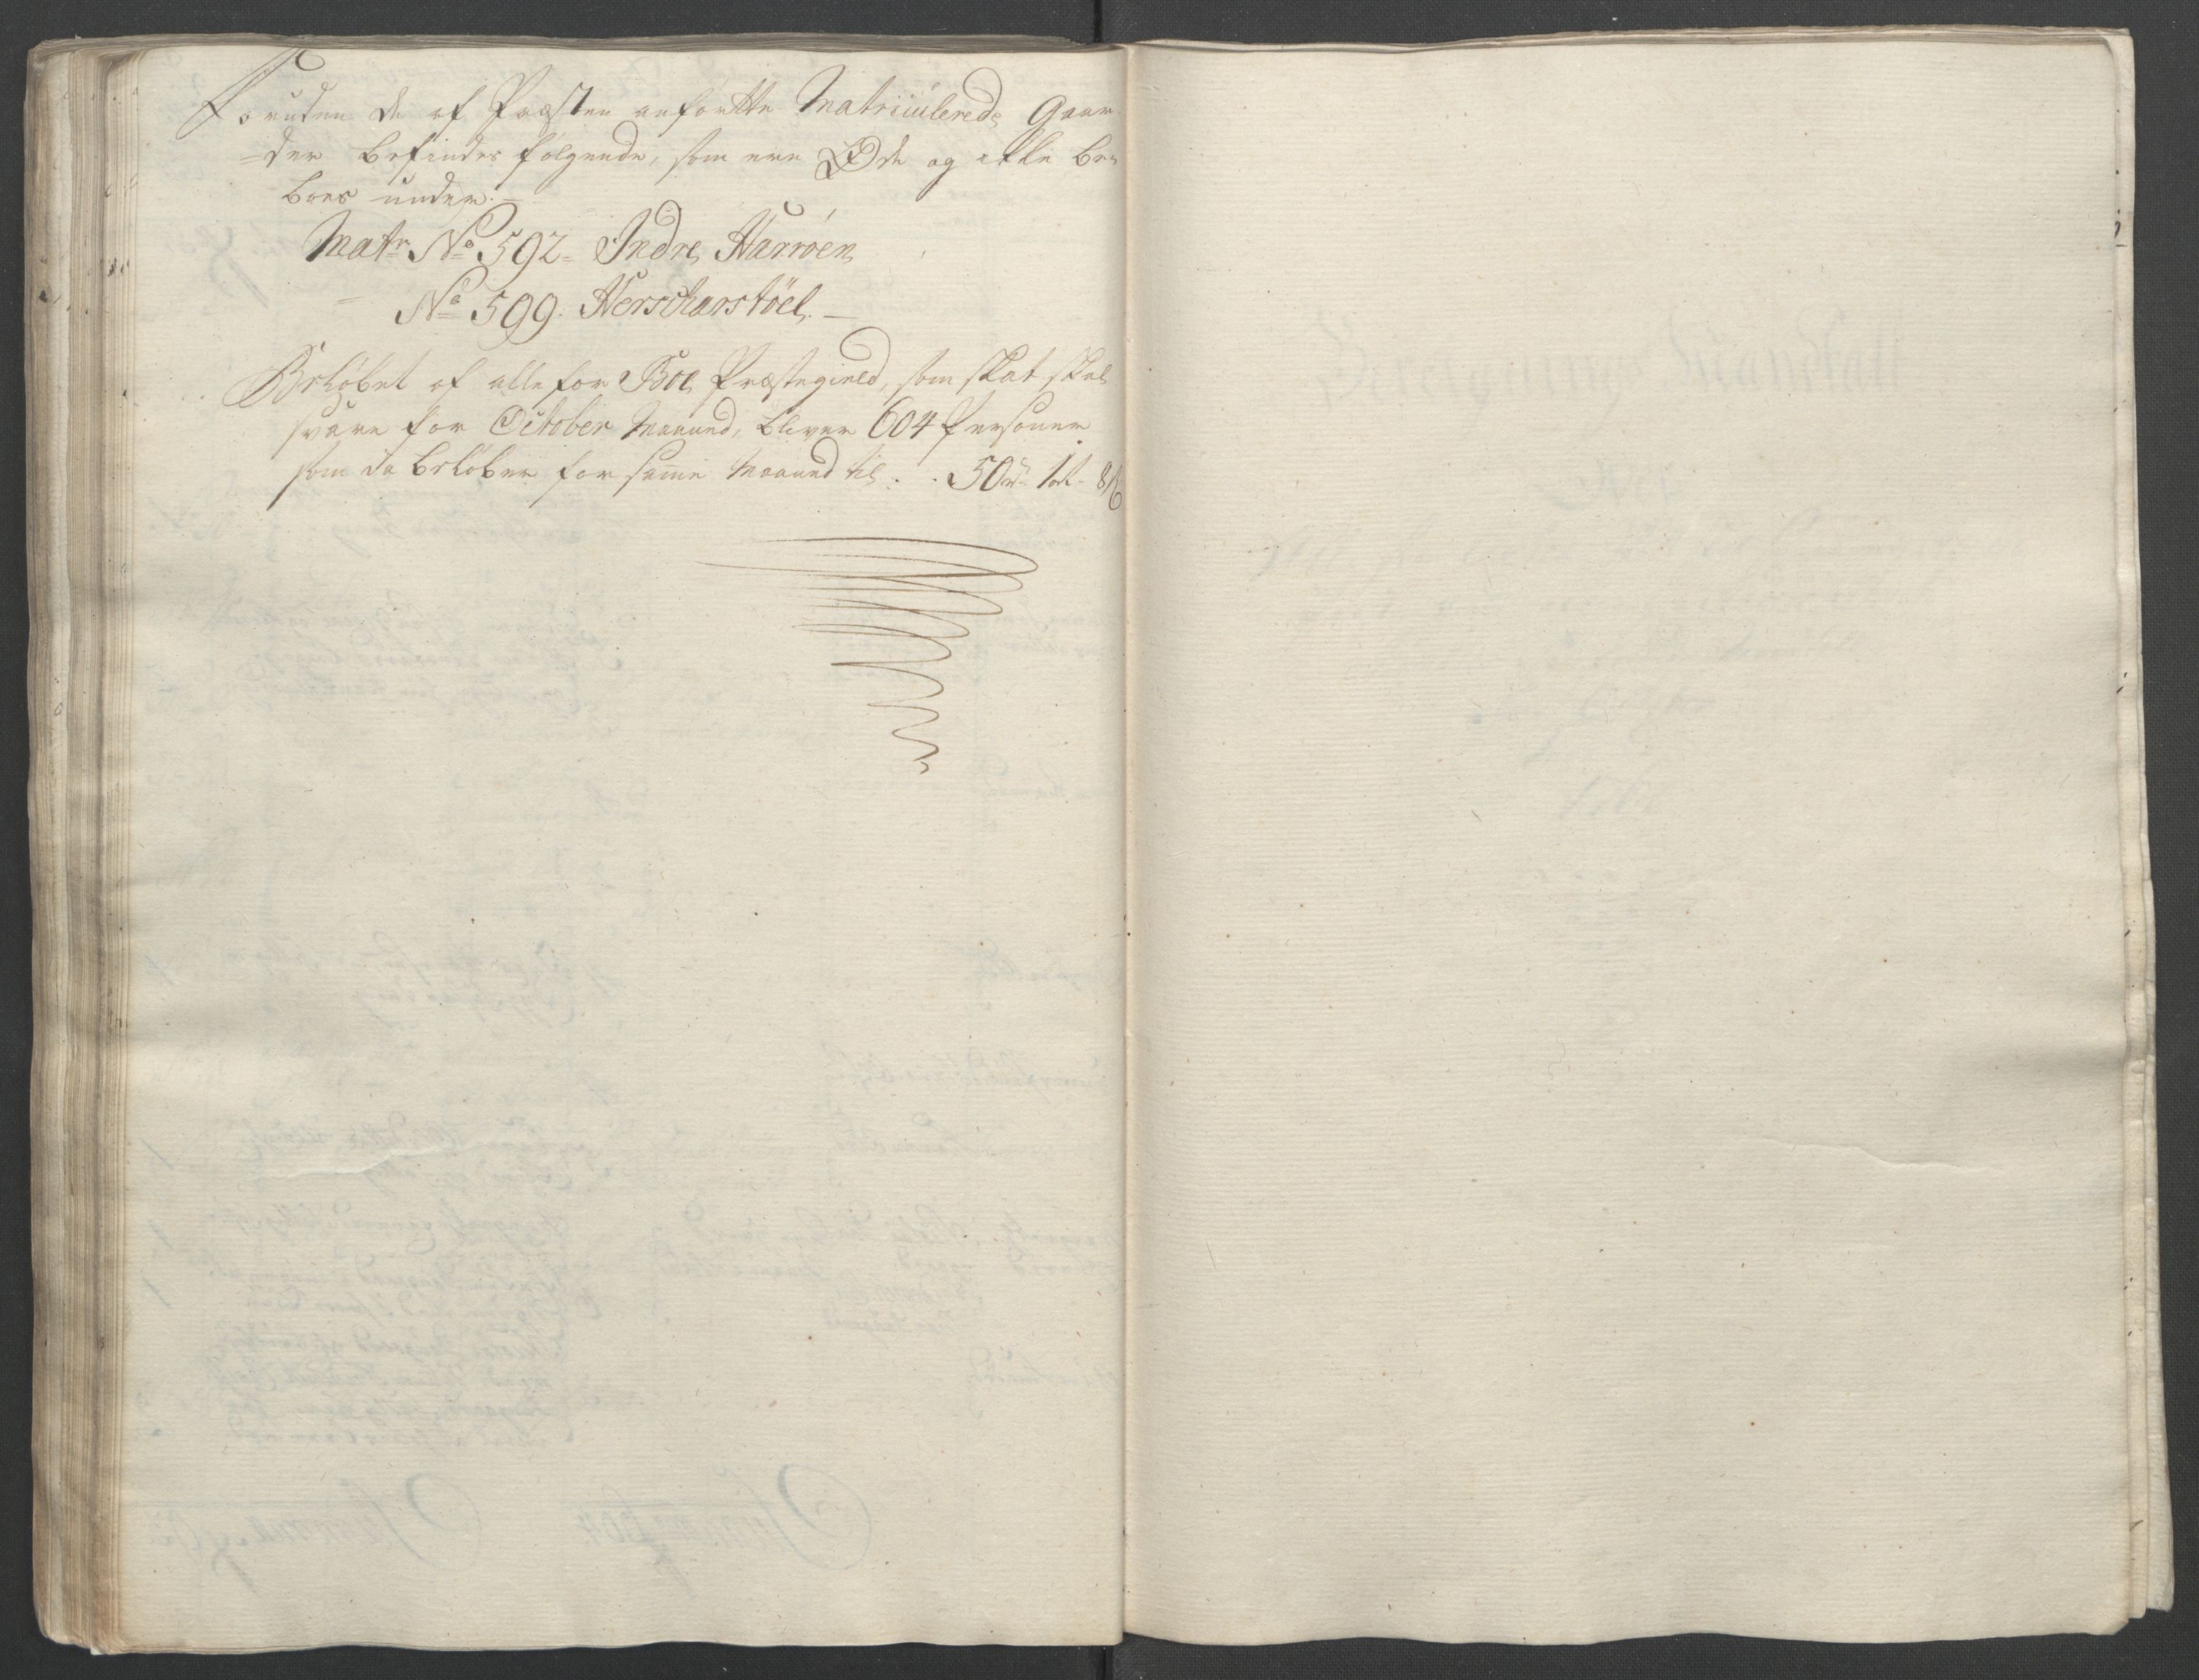 Foruden de af Præsten anførtte Matriculerede Gaar-
-der befindes følgende, som ere Øde og ikke be-
boes under:
Matr No 592 = Indre Haaroen
No 599. Herscharstöel. -
Beløbet af alle for Boe Præstegield, som skat skal
svare for October Maaned, bliver 604 Personer
som da beløber for samme Maaned til . . 50 rd 1 ort 8 s